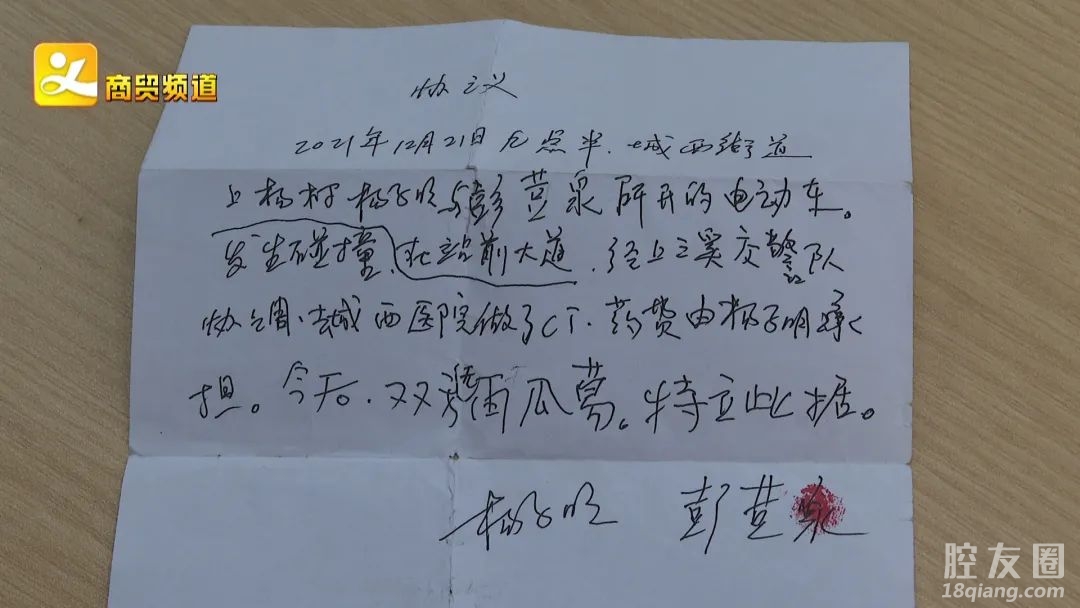 商贸频道
协议
2021年12月21日九点半.城西街道
上杨村杨子明与彭萱泉所开的电动车。
发生碰撞、在站前大道.经上溪交警队
协调、去城西医院做了CT.药费由杨子明承
担。今后.双方再无瓜葛。特立此据。
杨子明 彭萱泉
腔友圈
18qiang.com